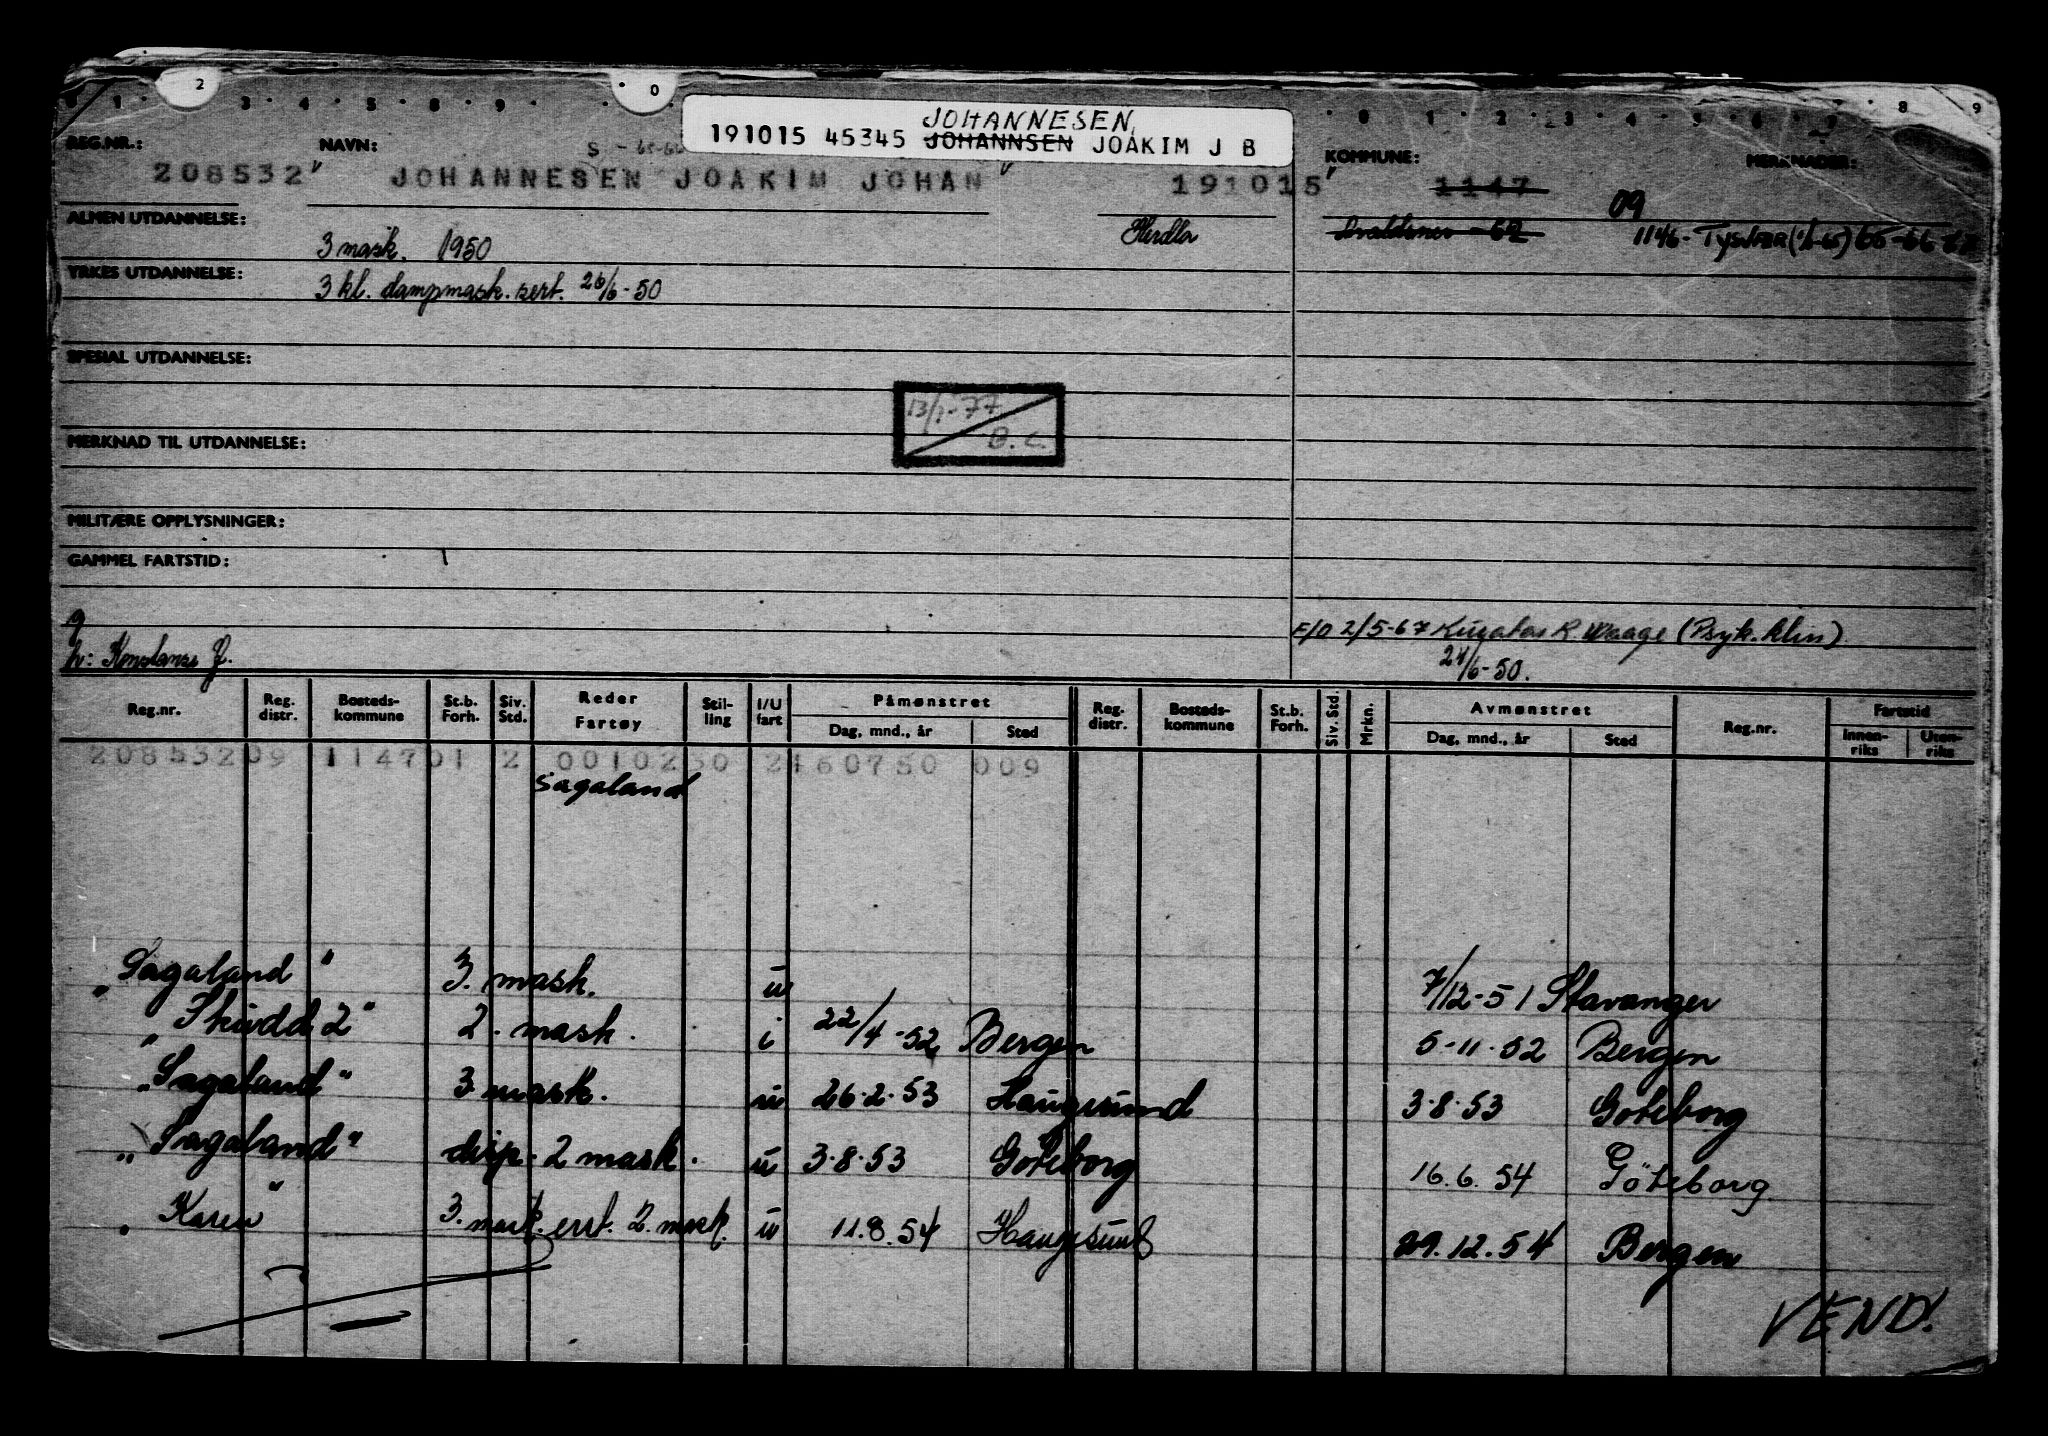 2 0
1 3 4 5 8 9 0 1 2 3 4 5 6 7 8 9
JOHANNESEN,
191015 45345 JOHANNSEN JOAKIM J B
REG.NR.: NAVN: KOMMUNE: MERKNADER:
208532 JOHANNESEN JOAKIM JOHAN 191015 1147
09
ALMEN UTDANNELSE: Herdla Avaldsnes -62 1146 - TYSVÆR (1/1-65) 65-66-67
3 mask. 1950
YRKES UTDANNELSE: 3 kl. dampmask. sert. 26/6-50
SPESIAL UTDANNELSE:
13/1-77
B.C.
MERKNAD TIL UTDANNELSE:
MILITÆRE OPPLYSNINGER:
GAMMEL FARTSTID:
g
E/O 2/5-67 R Waage (Psyk. klin)
h: Konstanse J. 24/6-50.
Reg.nr. Reg. distr. Bosteds-kommune St.b. Forh. Siv. Std. Reder Fartøy Stil-ling I/U fart Påmønstret Dag, mnd., år Sted Reg. distr. Bosteds-kommune St.b. Forh. Siv. Std. Mrkn. Avmønstret Dag, mnd., år Sted Reg.nr. Fartstid Innen-riks Uten-riks
208532 09 1147 01 2 0010230 2 160750 009
Sagaland
"Sagaland" 3. mask. u 7/12-51 Stavanger
"Skudd 2" 2. mask. i 22/4-52 Bergen 5-11-52 Bergen
"Sagaland" 3 mask. u 26.2.53 Haugesund 3.8.53 Goteborg
"Sagaland" disp. 2 mask. u 3.8.53 Goteborg 16.6.54 Göteborg
"Karen" 3. mask. erst. 2. mask. u 11.8.54 Haugesund 29.12.54 Bergen
VEND!